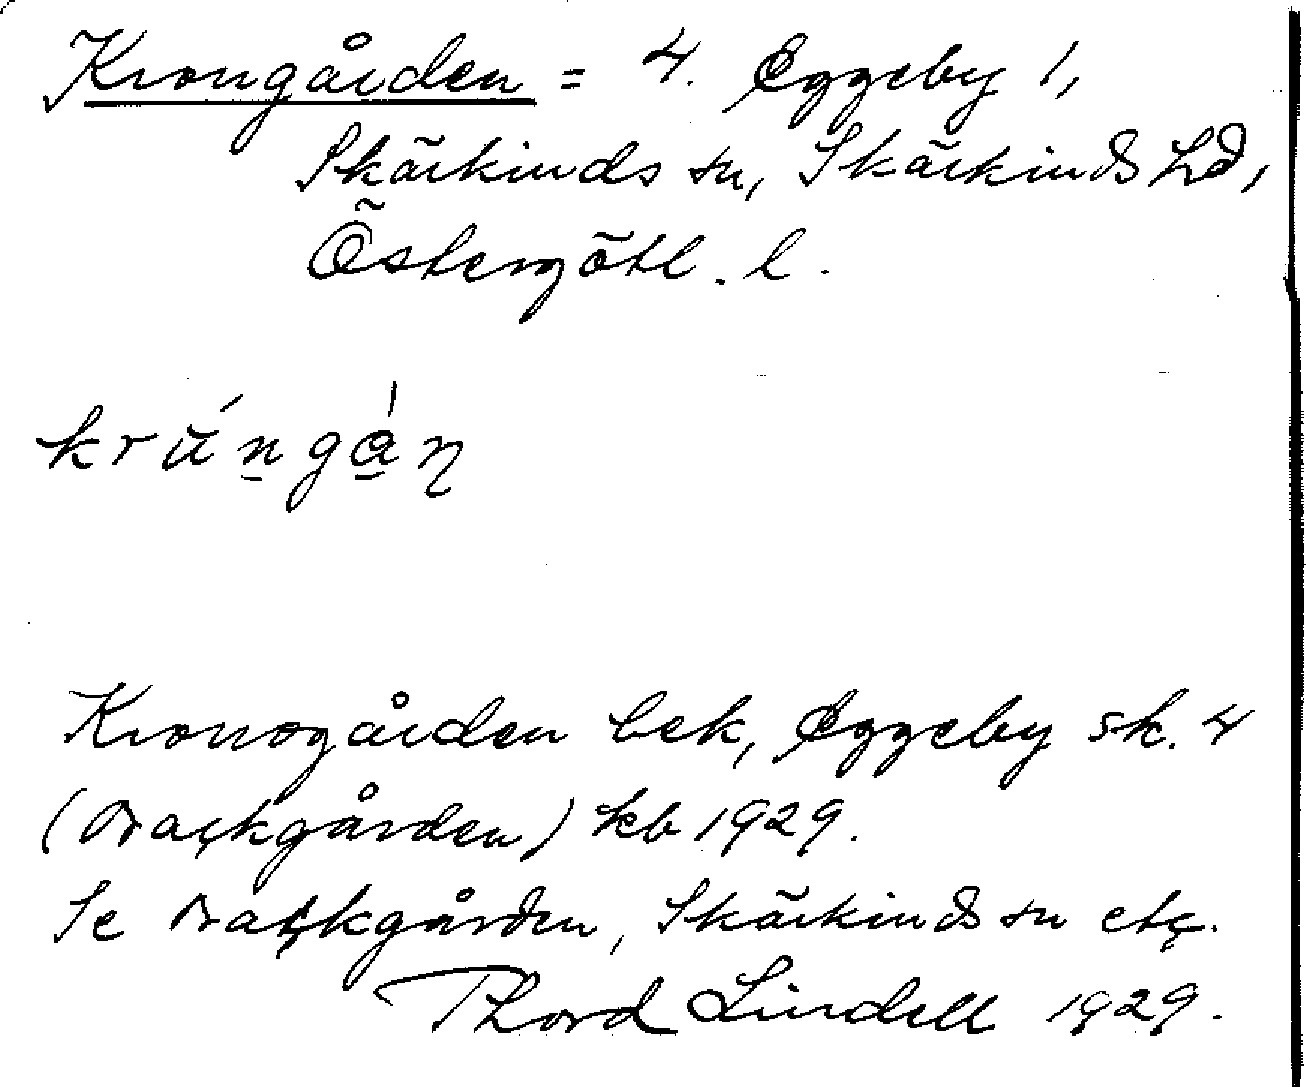 Krongården = 4. Eggeby 1,
Skärkinds sn, Skärkinds hd,
Östergötl. l.
krúngán
Kronogården bek, Eggeby sk. 4
(Backgården) kb 1929.
Se Backgården, Skärkinds sn etc.
Thord Lindell 1929.